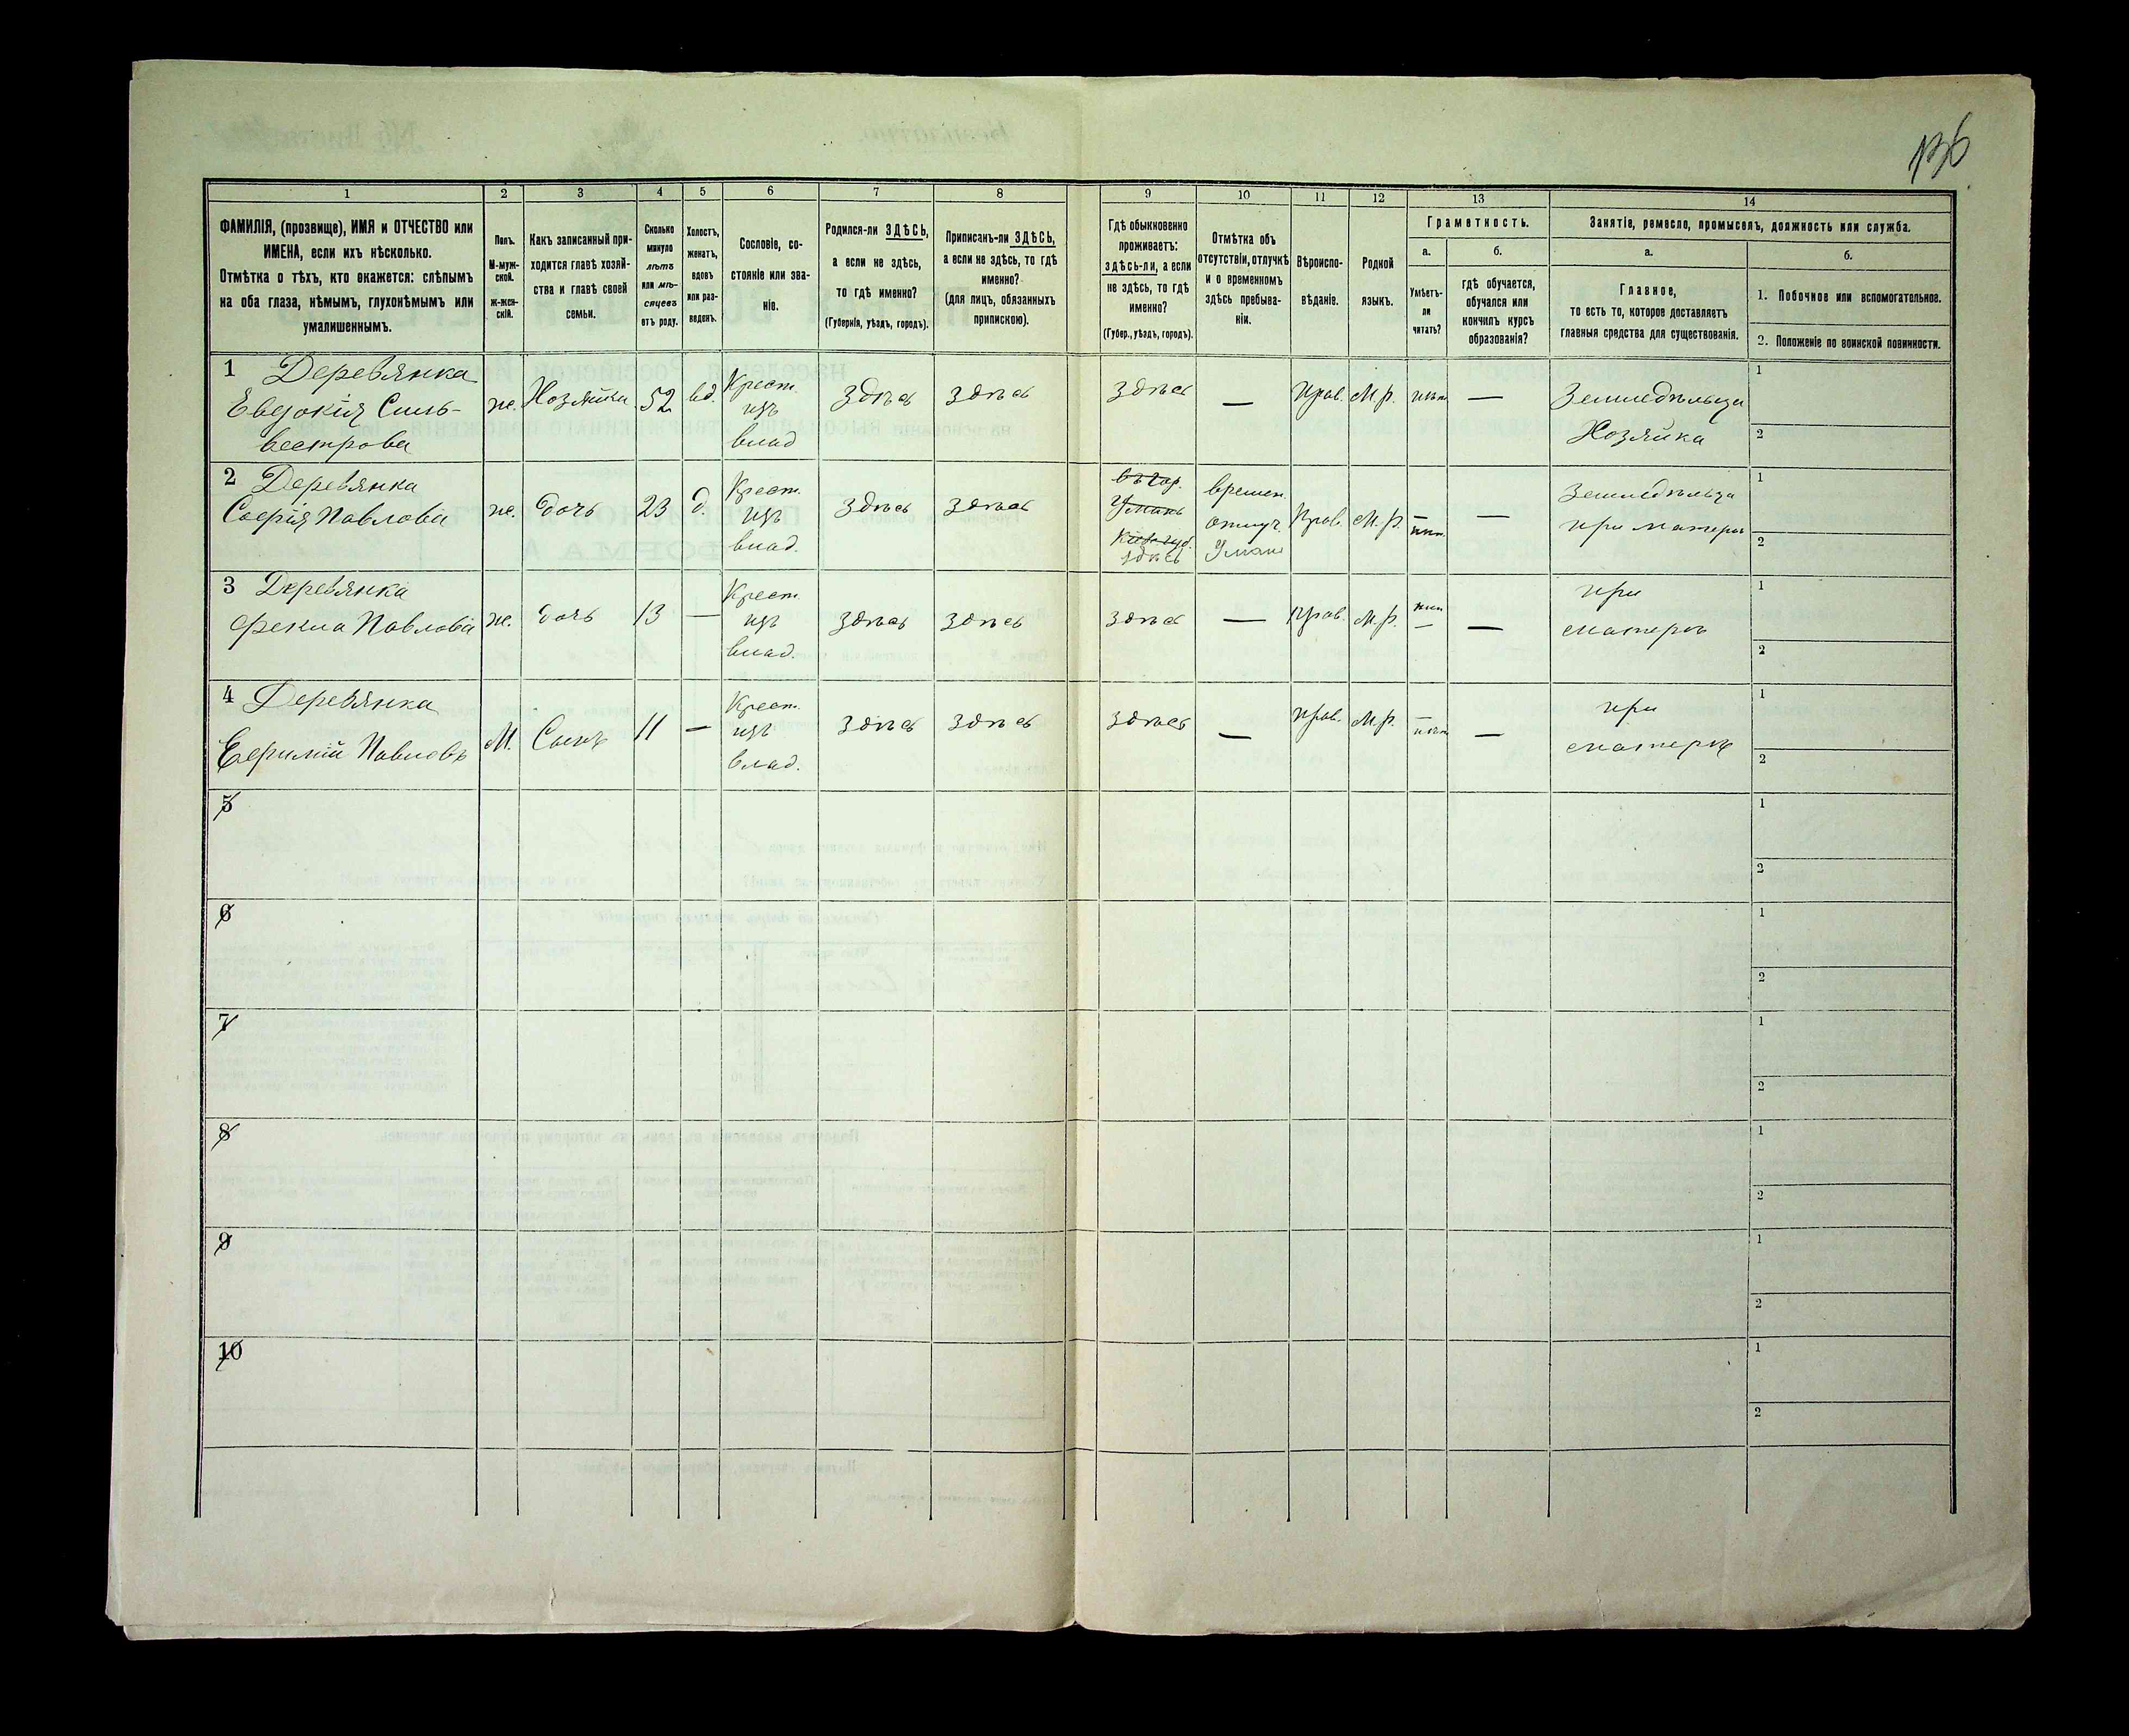 136
1 2 3 4 5 6 7 8 9 10 11 12 13 14
ФАМИЛІЯ, (прозвище), ИМЯ и ОТЧЕСТВО или
ИМЕНА, если ихъ нѣсколько.
Отмѣтка о тѣхъ, кто окажется: слѣпымъ
на оба глаза, нѣмымъ, глухонѣмымъ или
умалишеннымъ.
Полъ.
М-муж-
ской.
ж-жен-
скій.
Какъ записанный при-
ходится главѣ хозяй-
ства и главѣ своей
семьи.
Сколько
минуло
лѣтъ
или мѣ-
сяцевъ
отъ роду.
Холостъ,
женатъ,
вдовъ
или раз-
веденъ.
Сословіе, со-
стояніе или зва-
ніе.
Родился-ли ЗДѢСЬ,
а если не здѣсь,
то гдѣ именно?
(Губернія, уѣздъ, городъ).
Приписанъ-ли ЗДѢСЬ,
а если не здѣсь, то гдѣ
именно?
(для лицъ, обязанныхъ
припискою).
Гдѣ обыкновенно
проживаетъ:
здѣсь-ли, а если
не здѣсь, то гдѣ
именно?
(Губер., уѣздъ, городъ).
Отмѣтка объ
отсутствіи, отлучкѣ
и о временномъ
здѣсь пребыва-
ніи.
Вѣроиспо-
вѣданіе.
Родной
языкъ.
Грамотность.
а.
Умѣетъ-
ли
читать?
б.
гдѣ обучается,
обучался или
кончилъ курсъ
образованія?
Занятіе, ремесло, промыселъ, должность или служба.
а.
Главное,
то есть то, которое доставляетъ
главныя средства для существованія.
б.
1. Побочное или вспомогательное.
2. Положеніе по воинской повинности.
1 Деревянка
Евдокія Силь-
вестрова
же.
Хозяйка
52
вд.
Крест.
изъ
влад
Здѣсь
здѣсь
здѣсь
—
Прав.
М.р.
нѣт
—
Земледѣльца
Хозяйка
1
2
2 Деревянка
Софія Павлова
же.
дочь
23
д.
Крест.
изъ
влад.
здѣсь
здѣсь
въ гор.
Умань
Кіев. губ.
здѣсь
времен.
отлуч.
Умань
Прав.
М.р.
—
нѣт
—
Земледѣльца
при матери
1
2
3 Деревянка
Фекла Павлова
же.
дочь
13
—
Крест.
изъ
влад.
здѣсь
здѣсь
здѣсь
—
Прав.
М.р.
нѣт
—
—
при
матери
1
2
4 Деревянка
Ефимій Павловъ
М.
Сынъ
11
—
Крест.
изъ
влад.
здѣсь
здѣсь
здѣсь
—
Прав.
М.р.
—
нѣт
—
при
матери
1
2
5
1
2
6
1
2
7
1
2
8
1
2
9
1
2
10
1
2